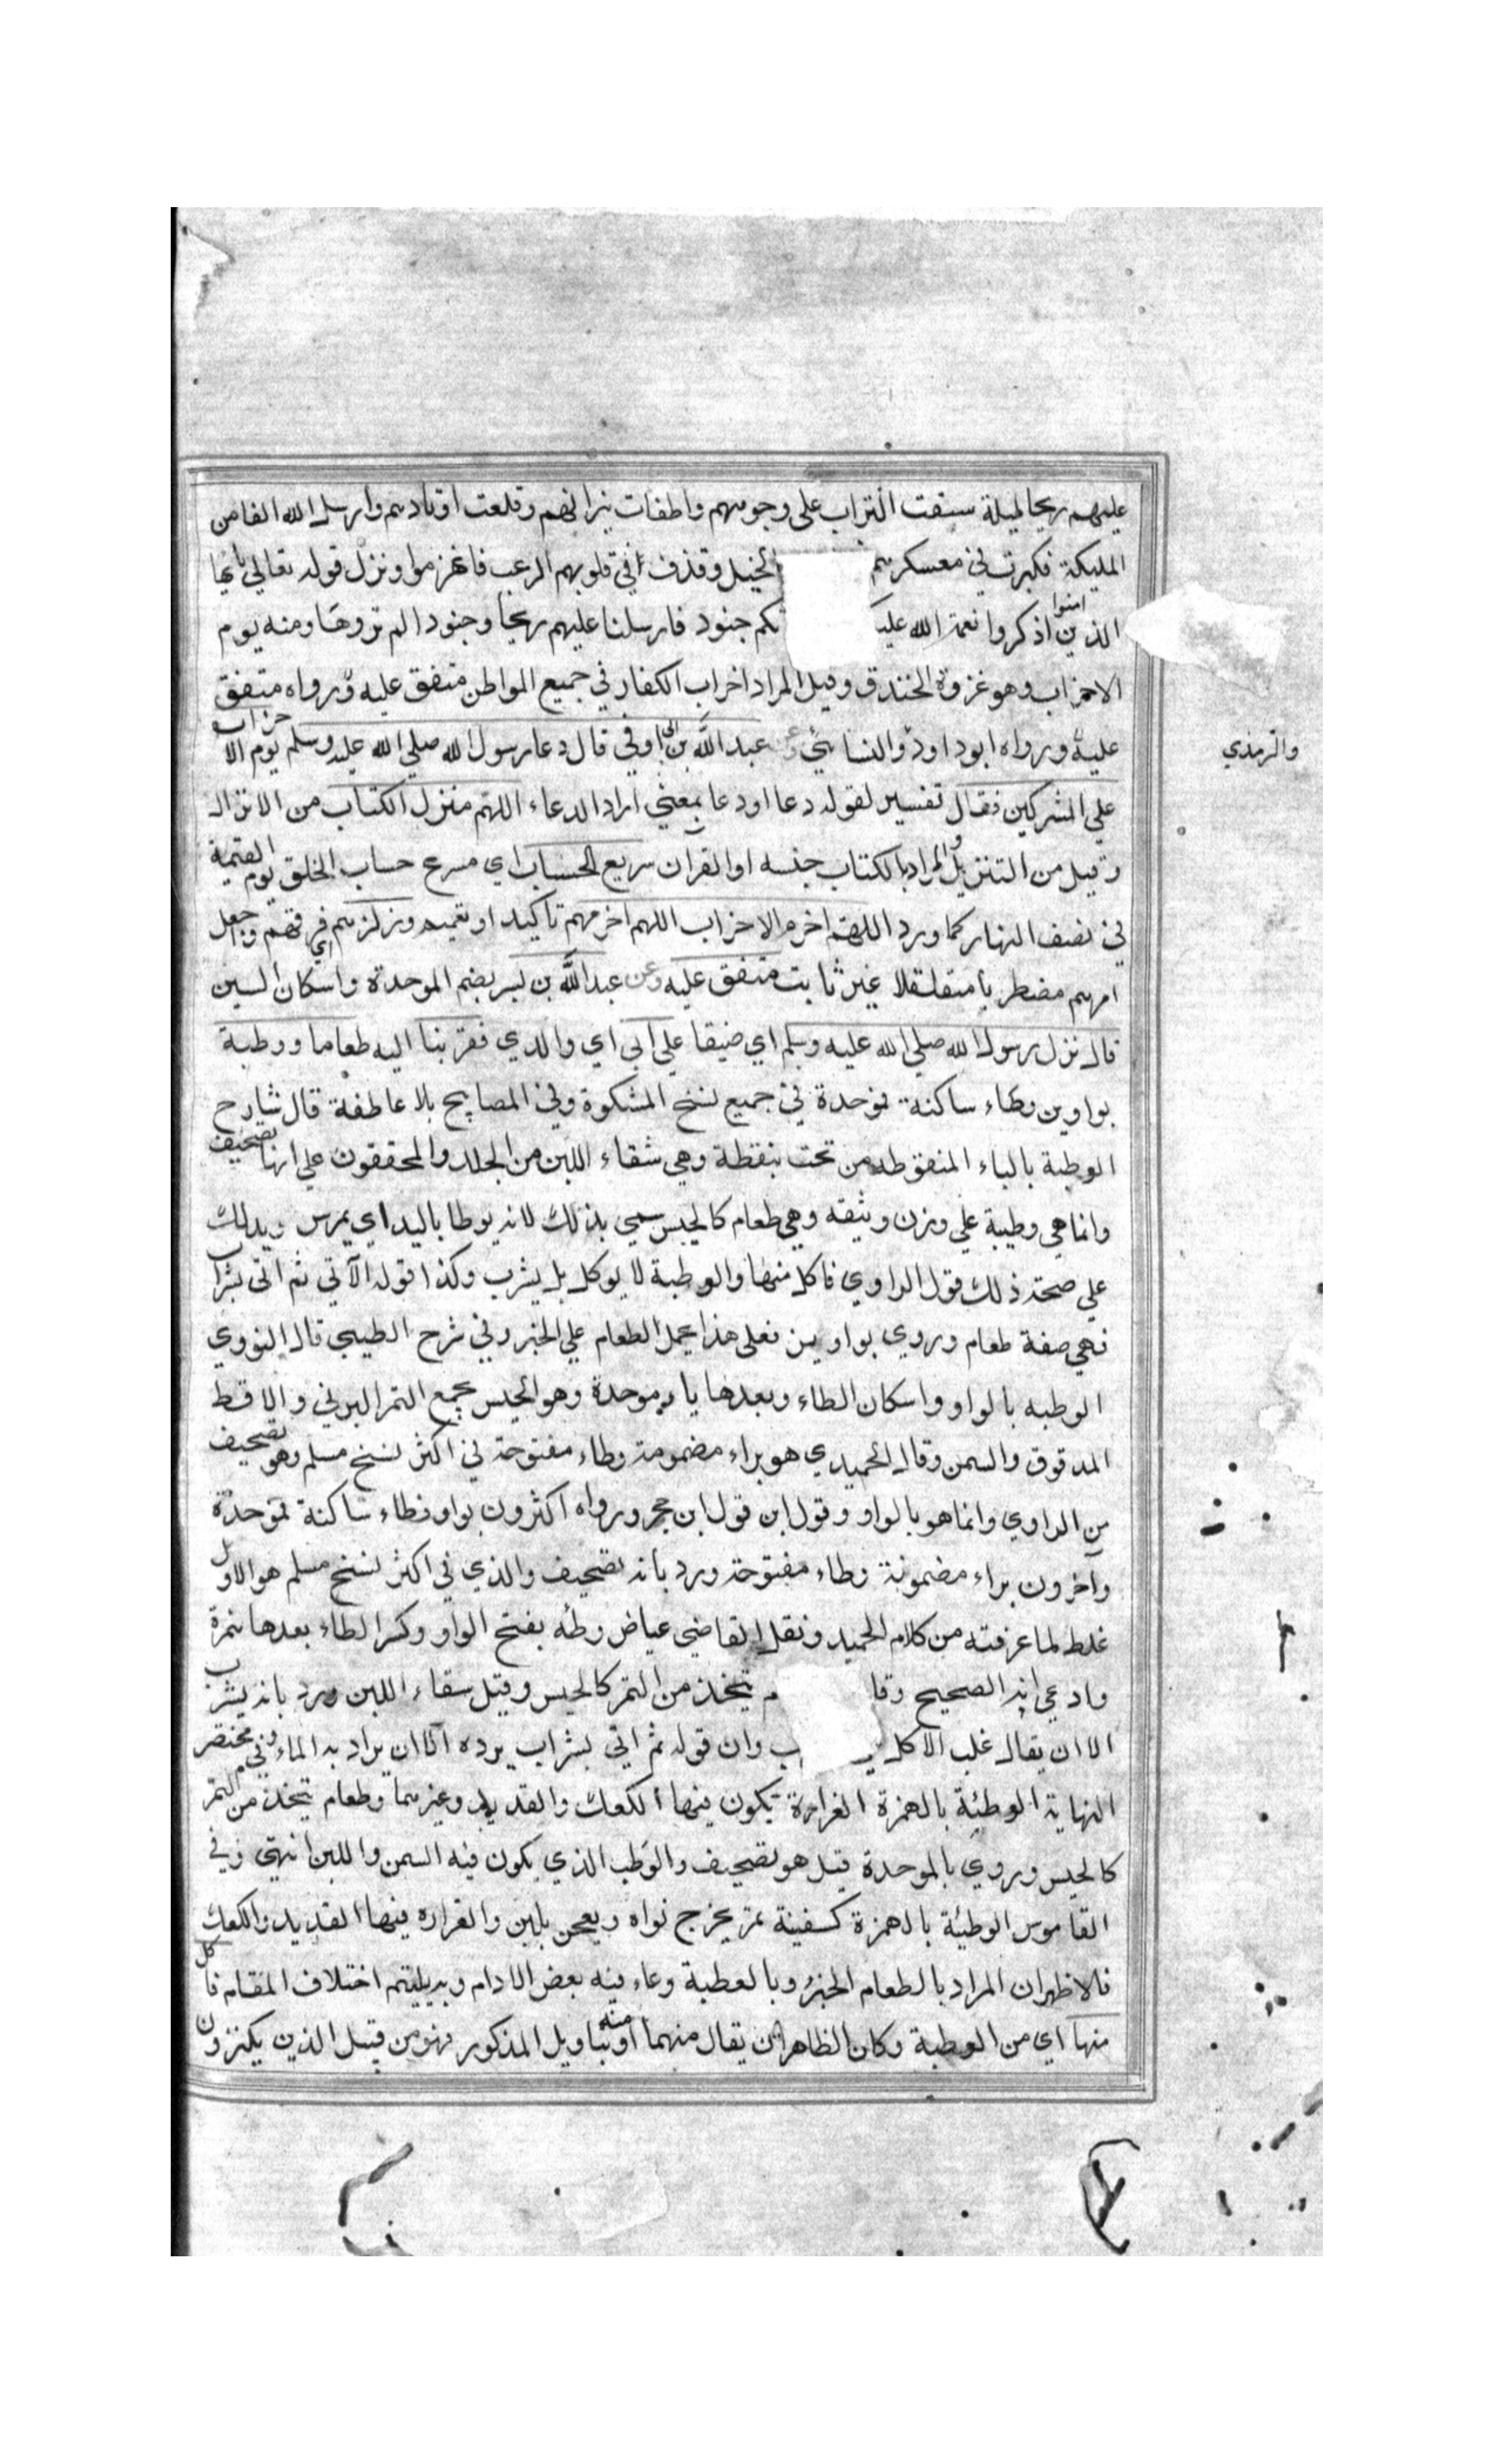 عليهم ريحا ليلة سفت التراب على وجوههم واطفات نيرانهم وقلعت اوتادهم وارسل الله الفا من
المليكة فكبرت في معسكرهم الخيل وقذف في قلوبهم الرعب فانهزموا ونزل قوله تعالي يا ايها
الذين امنوا اذكروا نعمة الله عليكم جنود فارسلنا عليهم ريحا وجنودا لم تروها ومنه يوم
الاحزاب وهو غزوة الخندق وقيل المراد احزاب الكفار في جميع المواطن متفق عليه ورواه متفق
عليه ورواه ابو داود والنسائي وعن عبد الله بن ابي اوفي قال دعا رسول الله صلي الله عليه وسلم يوم الاحزاب
والترمذي
علي المشركين فقال تفسير لقوله دعا او دعا بمعني اراد الدعاء اللهم منزل الكتاب من الانزال
وقيل من التنزيل والمراد بالكتاب جنسه او القران سريع الحساب اي مسرع حساب الخلق يوم القيمة
في نصف النهار كما ورد اللهم اهزم الاحزاب اللهم اهزمهم تاكيد او تعميم وزلزلهم اي فرقهم وجعل
امرهم مضطربا متقلقلا غير ثابت متفق عليه وعن عبد الله بن بسر بضم الموحدة واسكان السين
قال نزل رسول الله صلي الله عليه وسلم اي ضيفا علي ابي اي والدي فقربنا اليه طعاما ووطبة
بواوين وطاء ساكنة فوحدة في جميع نسخ المشكوة وفي المصابيح بلا عاطفة قال شارح
الوطبة بالباء المنقوطة من تحت بنقطة وهي سقاء اللبن من الجلد والمحققون علي انها تصحيف
وانما هي وطيبة علي وزن وثيقه وهي طعام كالحيس سمي بذلك لانه يوطا باليد اي يمرس ويدلك
علي صحة ذلك قول الراوي فاكل منها والوطبة لا يوكل بل يشرب وكذا قوله الآتي ثم اتي بشراب
فهي صفة طعام وروي بواوين فعلي هذا يحمل الطعام علي الخبز وفي شرح الطيبي قال النووي
الوطبه بالواو واسكان الطاء وبعدها باء موحدة وهو الحيس يجمع التمر البرني والاقط
المدقوق والسمن وقال الحميدي هو براء مضمومة وطاء مفتوحة في اكثر نسخ مسلم وهو تصحيف
من الراوي وانما هو بالواو وقول ابن قول ابن حجر ورواه اكثرون بواو وطاء ساكنة فموحدة
وآخرون براء مضمومة وطاء مفتوحة ورد بانه تصحيف والذي في اكثر نسخ مسلم هو الاول
غلط لما عرفته من كلام الحميد ونقل القاضي عياض وطئه بفتح الواو وكسر الطاء بعدها همزة
وادعي انه الصحيح وقا م تتخذ من التمر كالحيس وقيل سقاء اللبن ورد بانه يشرب
الا ان يقال غلب الاكل ب وان قوله ثم اتي بشراب يرده الا ان يراد به الماء وفي مختصر
النهاية الوطئة بالهمزة الغرارة تكون فيها الكعك والقديد وغيرهما وطعام يتخذ من التمر
كالحيس وروي بالموحدة قيل هو تصحيف والوطب الذي يكون فيه السمن واللبن انتهي وفي
القاموس الوطيئة بالهمزة كسفينة تمر يخرج نواه ويعجن بلبن والغراره فيها القديد والكعك
فالاظهر ان المراد بالطعام الخبز وبالوطبة وعاء فيه بعض الادام اختلاف المقام فاكل
منها اي من الوطبة وكان الظاهر ان يقال منهما او منه بتاويل المذكور فهو من قبيل الذين يكنزون